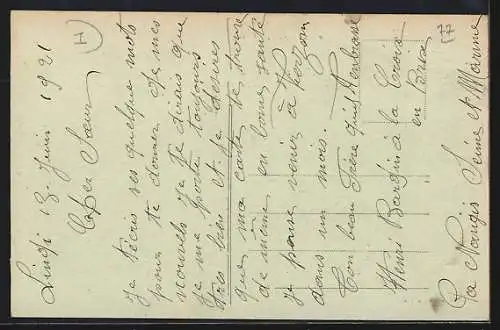 H
77
Lundi 13 Juin 1921
Cher Sœur
je t'écris ses quelque mots
pour te donner de mes
nouvels je te dirais que
je me porte toujours
très bien et je désires
que ma carte te trouve
de même en bonne santé
je pense venir à
dans un mois.
ton beau Frère qui
Henri à la Croix
en Brie
Pa Nangis Seine et Marne